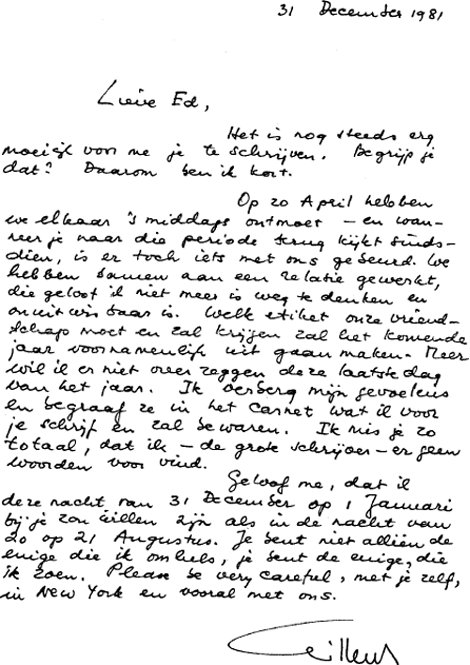 31 December 1981
Lieve Ed,
Het is nog steeds erg
moeilijk voor me je te schrijven. Begrijp je
dat? Daarom ben ik kort.
Op 20 April hebben
we elkaar 's middags ontmoet – en wan-
neer je naar die periode terug kijkt sinds-
dien, is er toch iets met ons gebeurd. We
hebben samen aan een relatie gewerkt,
die geloof ik niet meer is weg te denken en
onuitwisbaar is. Welk etiket onze vriend-
schap moet en zal krijgen zal het komende
jaar voornamelijk uit gaan maken. Meer
wil ik er niet over zeggen deze laatste dag
van het jaar. Ik verberg mijn gevoelens
en begraaf ze in het Carnet wat ik voor
je schrijf en zal bewaren. Ik mis je zo
totaal, dat ik – de grote schrijver – er geen
woorden voor vind.
Geloof me, dat ik
deze nacht van 31 December op 1 Januari
bij je zou willen zijn als in de nacht van
20 op 21 Augustus. Je bent niet alléén de
enige die ik omhels, je bent de enige, die
ik zoen. Please be very careful, met je zelf,
in New York en vooral met ons.